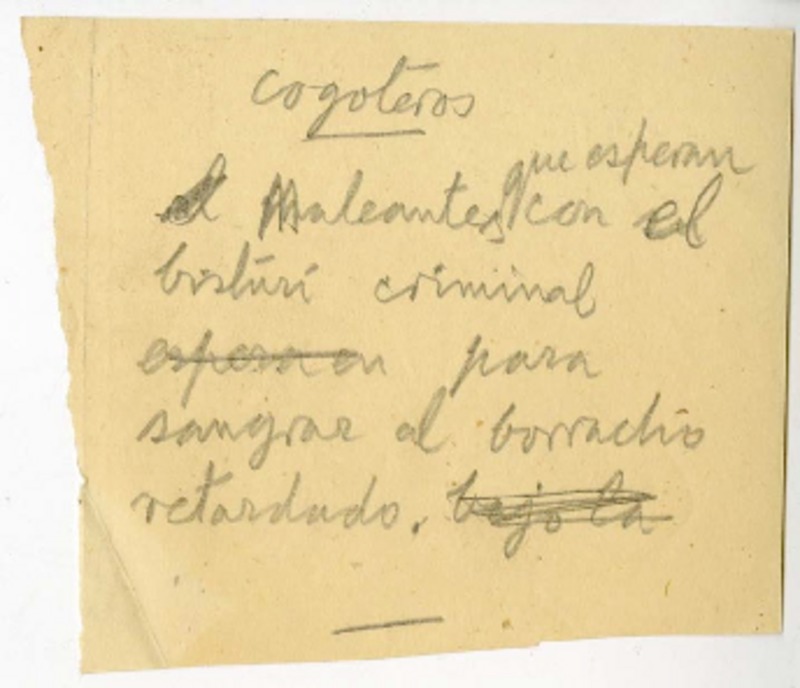 cogoteros
que esperan
El Maleantes con el
bisturí criminal
esperan en para
sangrar al borracho
retardado. bajo la